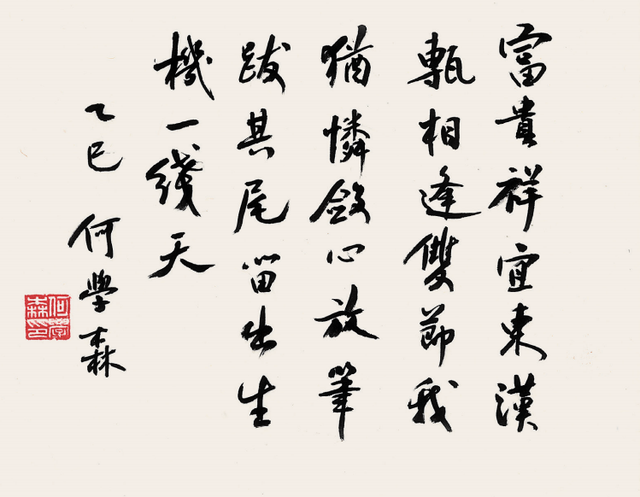 富貴祥宜東漢
甎相逢雙節我
猶憐斂心放筆
跋其尾留出生
機一綫天
乙巳 何學森
何學森印